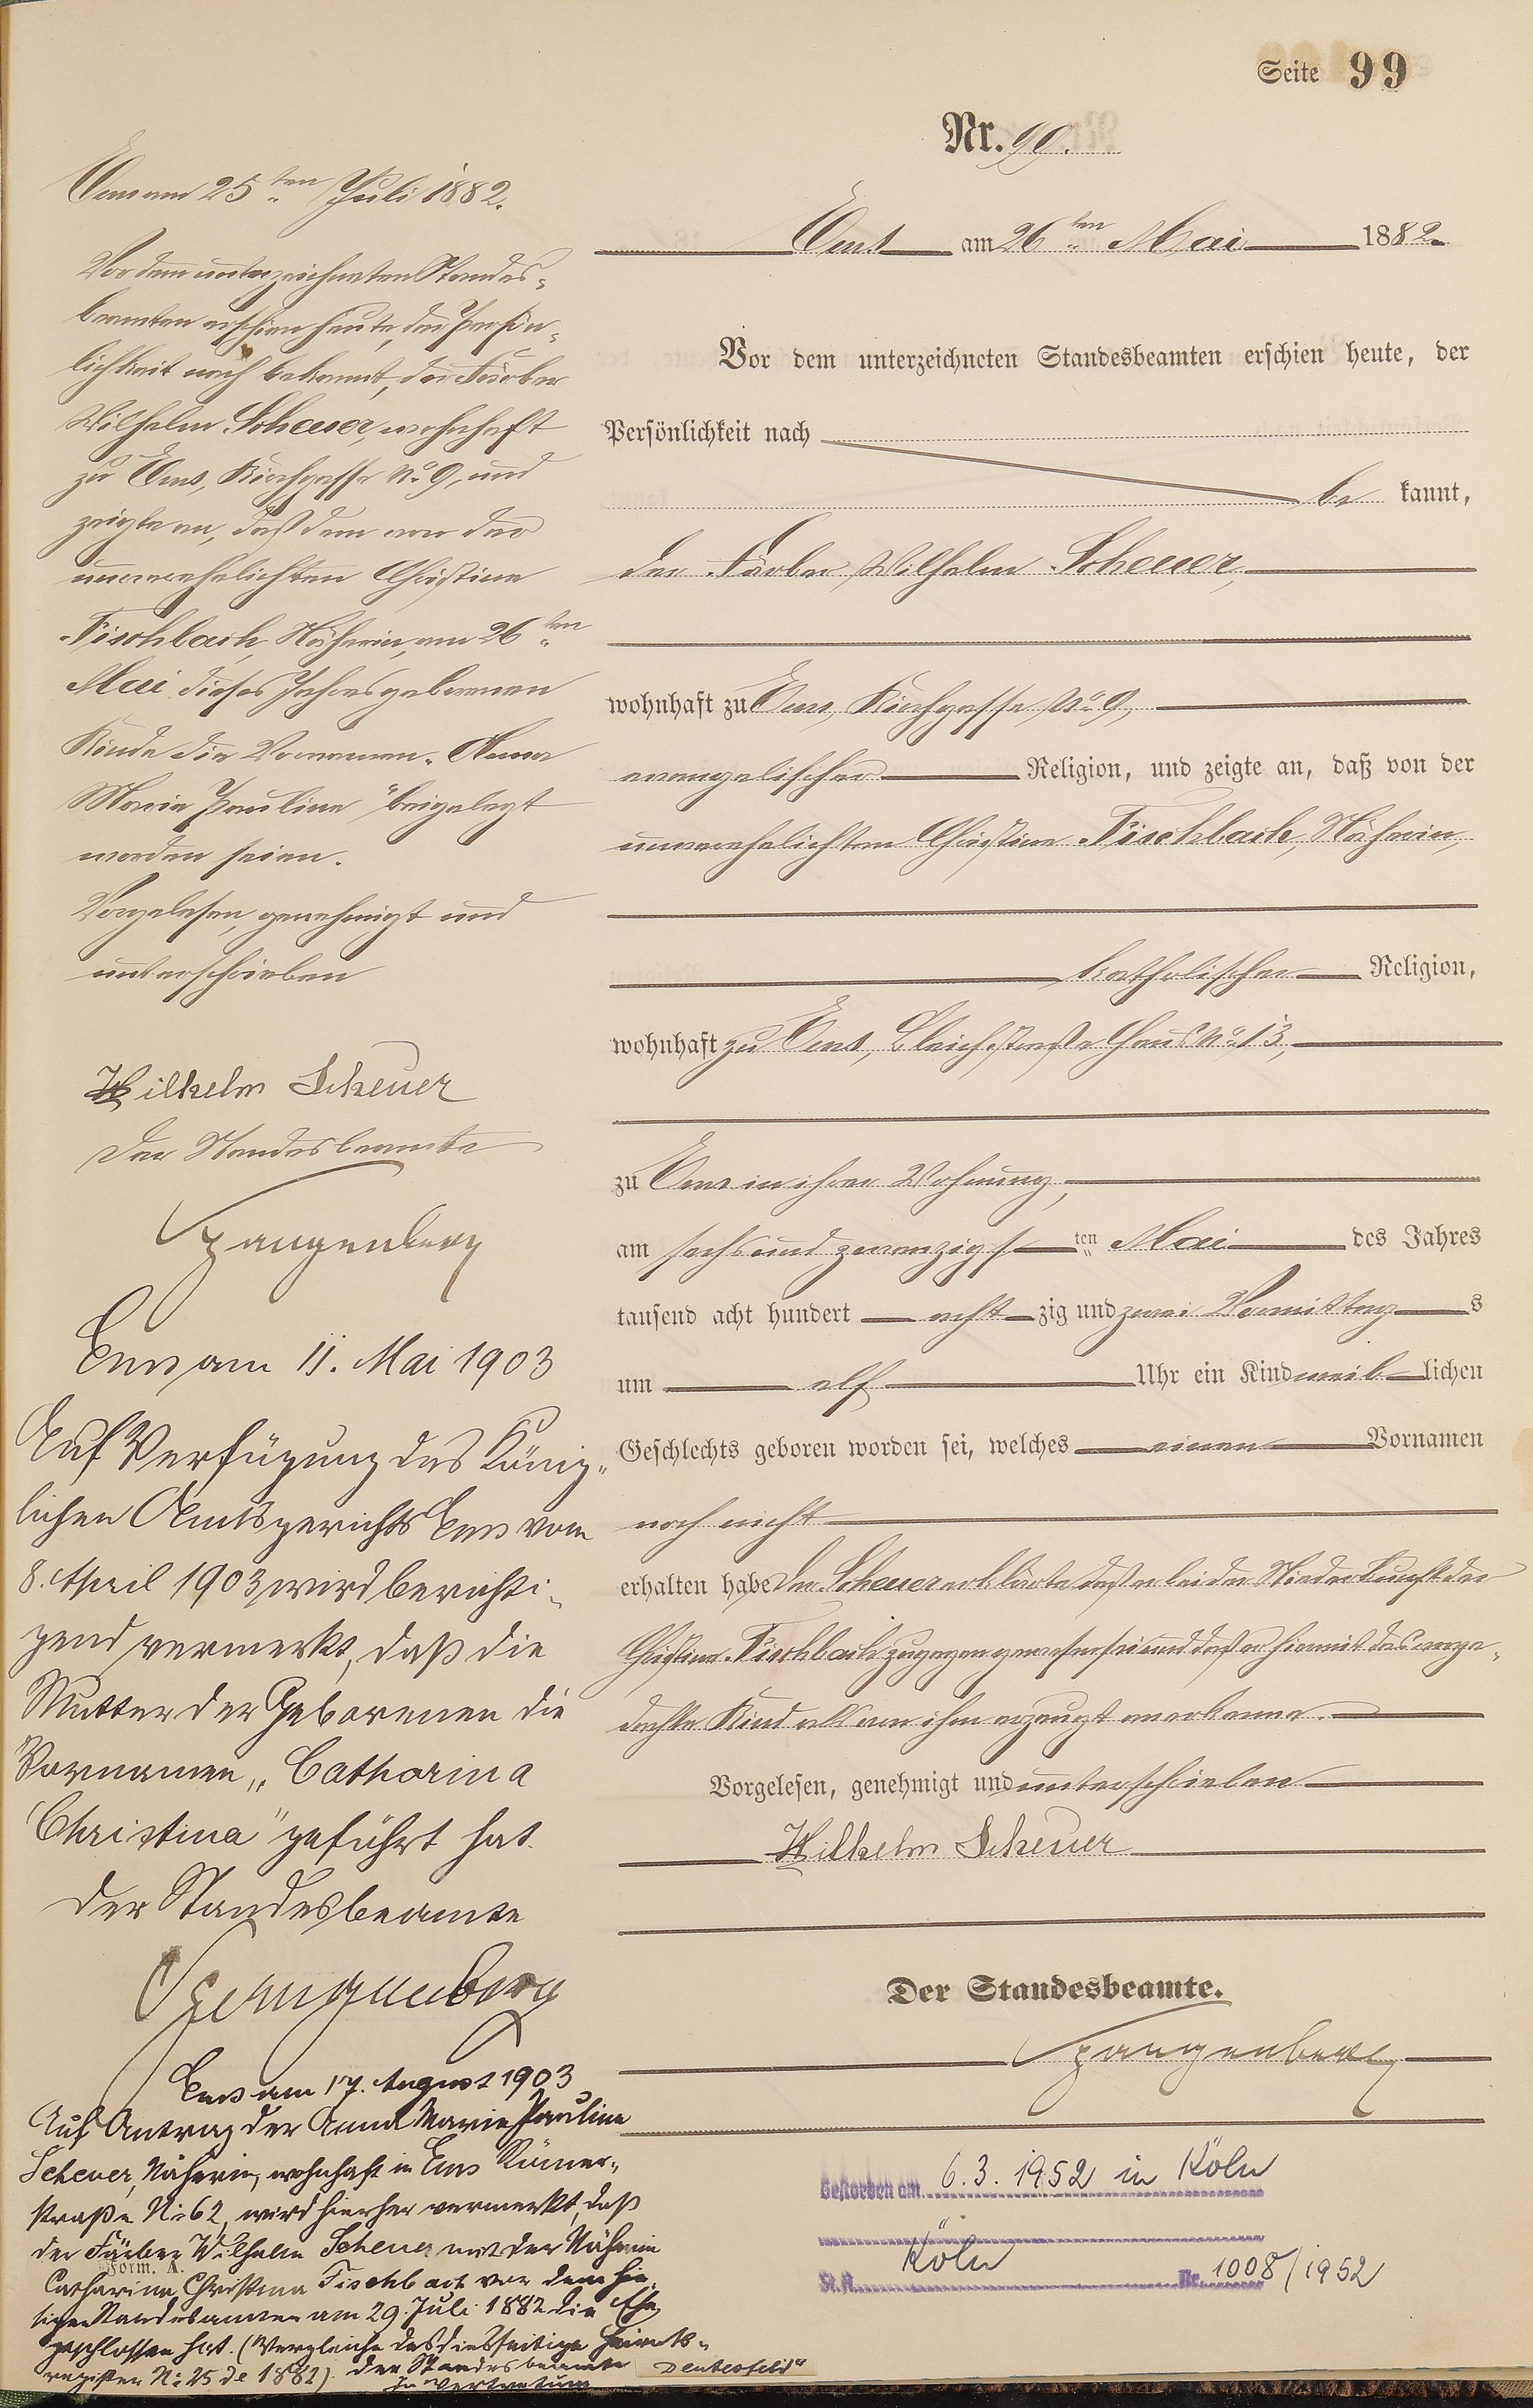 Seite 99
Nr. 90.
Ems am 26ten Mai 1882.
Vor dem unterzeichneten Standesbeamten erschien heute, der
Persönlichkeit nach
be kannt,
der Färber Wilhelm Scheuer,
wohnhaft zu Ems, Kirchgasse No 9,
evangelischer Religion, und zeigte an, daß von der
unverehelichten Christine Fischbach, Näherin,
katholischer Religion,
wohnhaft zu Ems, Bleichstraße Haus No 13,
zu Ems in ihrer Wohnung,
am sechs und zwanzigsten Mai des Jahres
tausend acht hundert acht zig und zwei Vormittags
um elf Uhr ein Kind weiblichen
Geschlechts geboren worden sei, welches einen Vornamen
noch nicht
erhalten habe. Der Scheuer erklärte daß er bei der Niederkunft der
Christine Fischbach zugegen gewesen sei und daß er hiermit das ange-
dachte Kind als von ihm erzeugt anerkenne.
Vorgelesen, genehmigt und unterschrieben
Wilhelm Scheuer
Der Standesbeamte.
Spangenberg
Ems am 25ten Juli 1882.
Vor dem unterzeichneten Standes-
beamten erschien heute, der Persön-
lichkeit nach bekannt, der Färber
Wilhelm Scheuer, wohnhaft
zu Ems, Kirchgasse No 9, und
zeigte an, daß dem von der
unverehelichten Christine
Fischbach, Näherin, am 26ten
Mai dieses Jahres geborenen
Kinde die Vornamen „Anna
Maria Pauline" beigelegt
worden seien.
Vorgelesen, genehmigt und
unterschrieben
Wilhelm Scheuer
Der Standesbeamte
Spangenberg
Ems am 11. Mai 1903
Auf Verfügung des König-
lichen Amtsgerichts Ems vom
8. April 1903 wird berichti-
gend vermerkt, daß die
Mutter der Geborenen die
Vornamen „Catharina
Christina" geführt hat.
Der Standesbeamte
Spangenberg
Ems am 17. August 1903
Auf Antrag der Anna Marie Pauline
Scheuer, Näherin, wohnhaft in Ems Römer-
straße No 62, wird hierher vermerkt, daß
der Färber Wilhelm Scheuer mit der Näherin
Form. A.
Catharina Christina Fischbach vor dem hie-
sigen Standesamte am 29. Juli 1882 die Ehe
geschlossen hat. (Vergleiche das diesseitige Heirats-
register No 25 de 1882) Der Standesbeamte
In Vertretung
Gestorben am 6.3.1952 in Köln
St.A. Köln Nr. 1008/1952